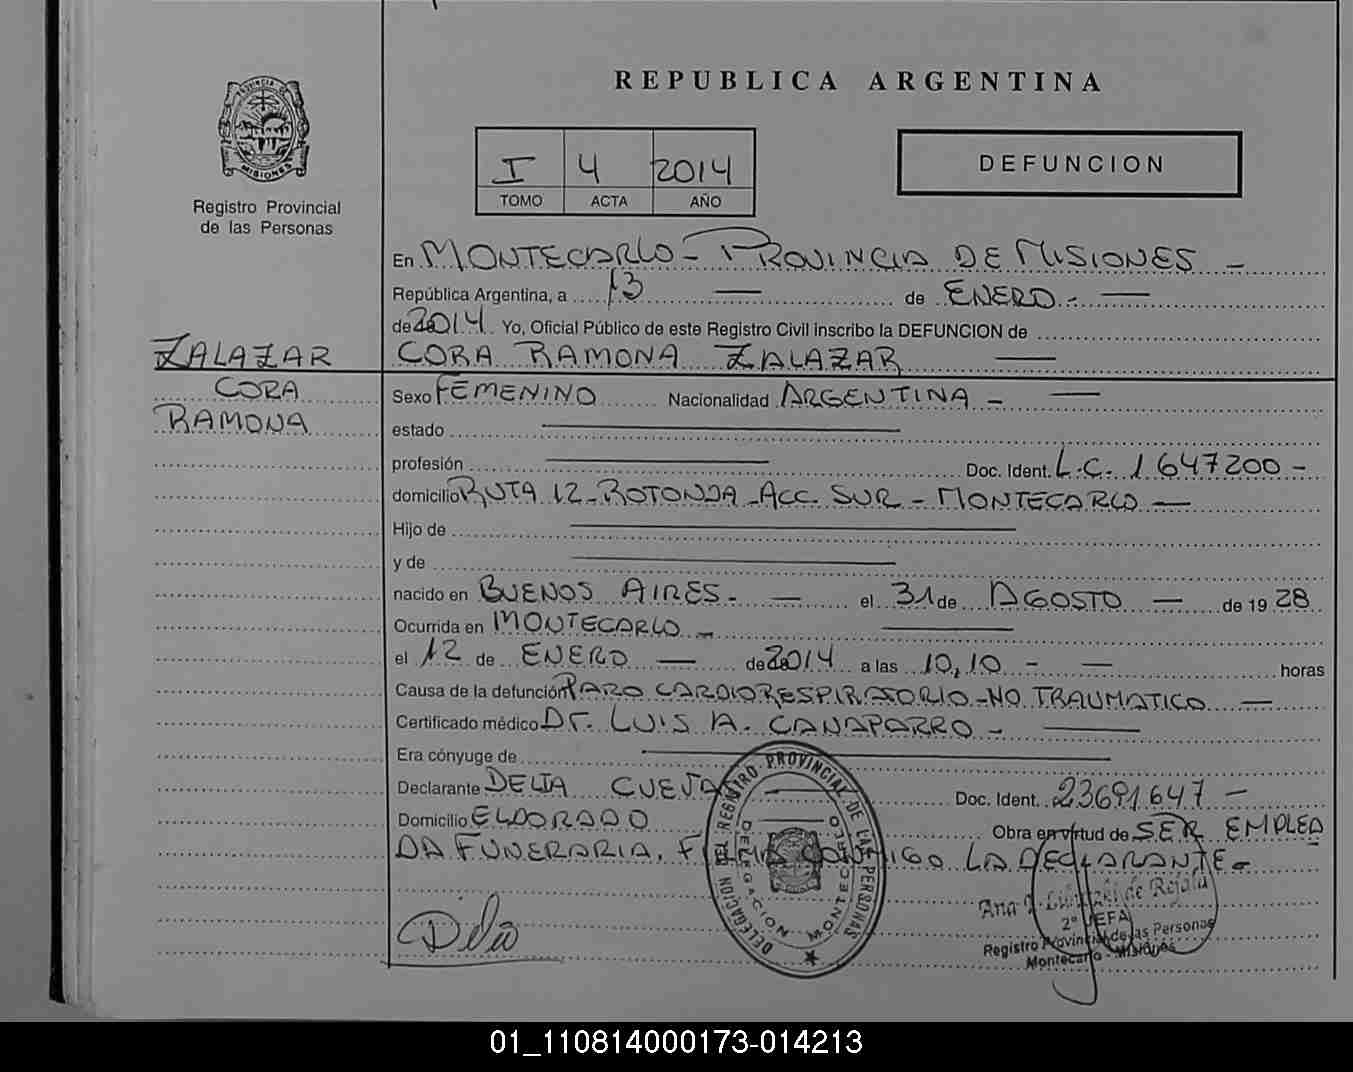 REPUBLICA ARGENTINA
PROVINCIA DE MISIONES
Registro Provincial
de las Personas
I 4 2014
TOMO ACTA AÑO
DEFUNCION
En MONTECARLO - PROVINCIA DE MISIONES -
República Argentina, a 13 — de ENERO - —
de 2014 Yo, Oficial Público de este Registro Civil inscribo la DEFUNCION de
ZALAZAR CORA RAMONA ZALAZAR —
CORA
RAMONA
Sexo FEMENINO Nacionalidad ARGENTINA - —
estado —
profesión — Doc. Ident. L.C. 1647200 -
domicilio RUTA 12 - ROTONDA - ACC. SUR - MONTECARLO —
Hijo de —
y de —
nacido en BUENOS AIRES - — el 31 de AGOSTO — de 19 28
Ocurrida en MONTECARLO - —
el 12 de ENERO — de 2014 a las 10,10 - — horas
Causa de la defunción PARO CARDIORESPIRATORIO - NO TRAUMATICO —
Certificado médico Dr. LUIS A. CANAPARRO - —
Era cónyuge de —
Declarante DELIA CUEVA — Doc. Ident. 23691647 -
Domicilio ELDORADO — Obra en virtud de SER EMPLEA
DA FUNERARIA, FIRMA CONMIGO LA DECLARANTE -
DELEGACION DEL REGISTRO PROVINCIAL DE LAS PERSONAS
DELEGACION MONTECARLO
Delia
Ana de
2° JEFA
Registro Provincial de las Personas
Montecarlo - Misiones
01_110814000173-014213